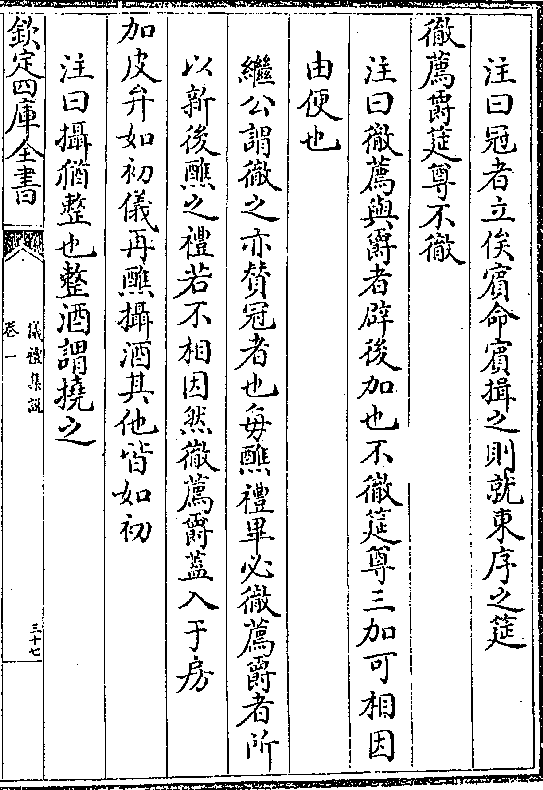 注曰冠者立俟賓命賓揖之則就東序之筵
徹薦爵筵尊不徹
注曰徹薦與爵者辟後加也不徹筵尊三加可相因
由便也
繼公謂徹之亦賛冠者也每醮禮畢必徹薦爵者所
以新後醮之禮若不相因然徹薦爵蓋入于房
加皮弁如初儀再醮攝酒其他皆如初
注曰攝猶整也整酒謂撓之
欽定四庫全書
儀禮集說
卷一
三十七